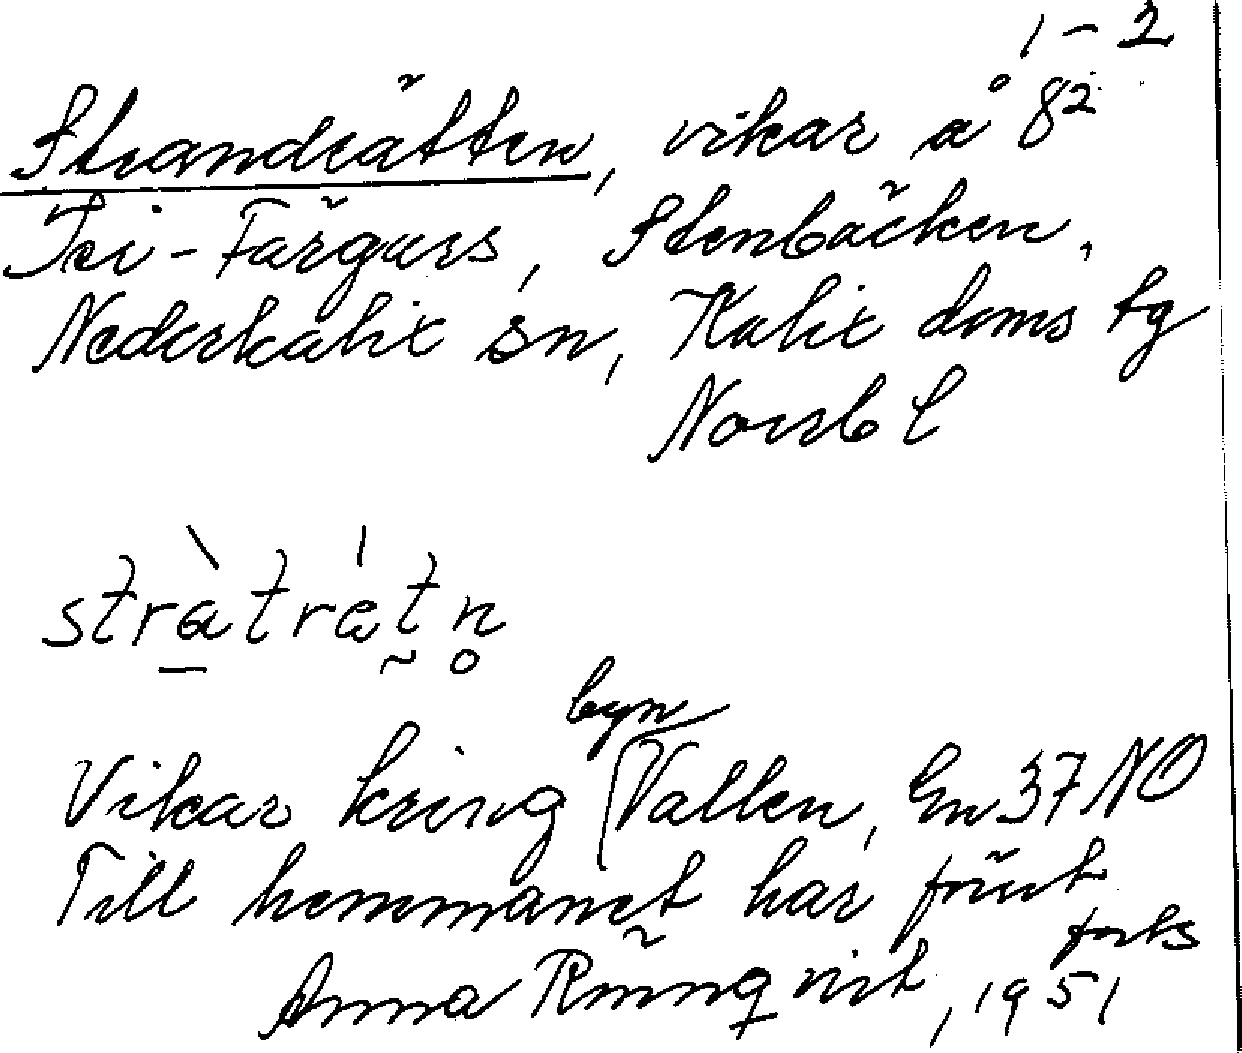 1-2
Strandrätten, vikar å 8²
Tri-Färgars, Stenbäcken,
Nederkalix sn, Kalix doms tg
Norrb l
stràtrætn
byn
Vikar kring Vallen, Gn 37 NO
Till hemmanet har förut
forts
Anna Rönnqvist, 1951